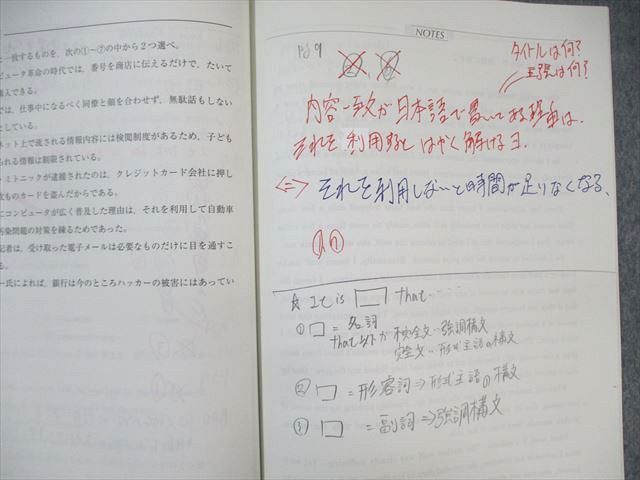 一致するものを、次の①~⑦の中から2つ選べ。
ピュータ革命の時代では、番号を商店に伝えるだけで、たいて
購入できる。
では、仕事中になるべく同僚と顔を合わせず、無駄話もしない
としている。
ネット上で流される情報内容には検閲制度があるため、子ども
られる情報は制限されている。
・ミトニックが逮捕されたのは、クレジットカード会社に押し
数ものカードを盗んだからである。
にコンピュータが広く普及した理由は、それを利用して自動車
汚染問題の対策を練るためであった。
記者は、受け取った電子メールは必要なものだけに目を通すこ
る。
ー氏によれば、銀行は今のところハッカーの被害にはあってい
NOTES
P89
タイトルは何?
主張は何?
内容一致が日本語で書いてある場合は、
それを利用すると はやく解けるヨ.
<=> それを利用しないと時間が足りなくなる、
☆ It is □ that ‥‥
① □ = 名詞
that以下が 不完全文…強調構文
完全文…形式主語の構文
② □ = 形容詞⇒形式主語の構文
③ □ = 副詞⇒強調構文